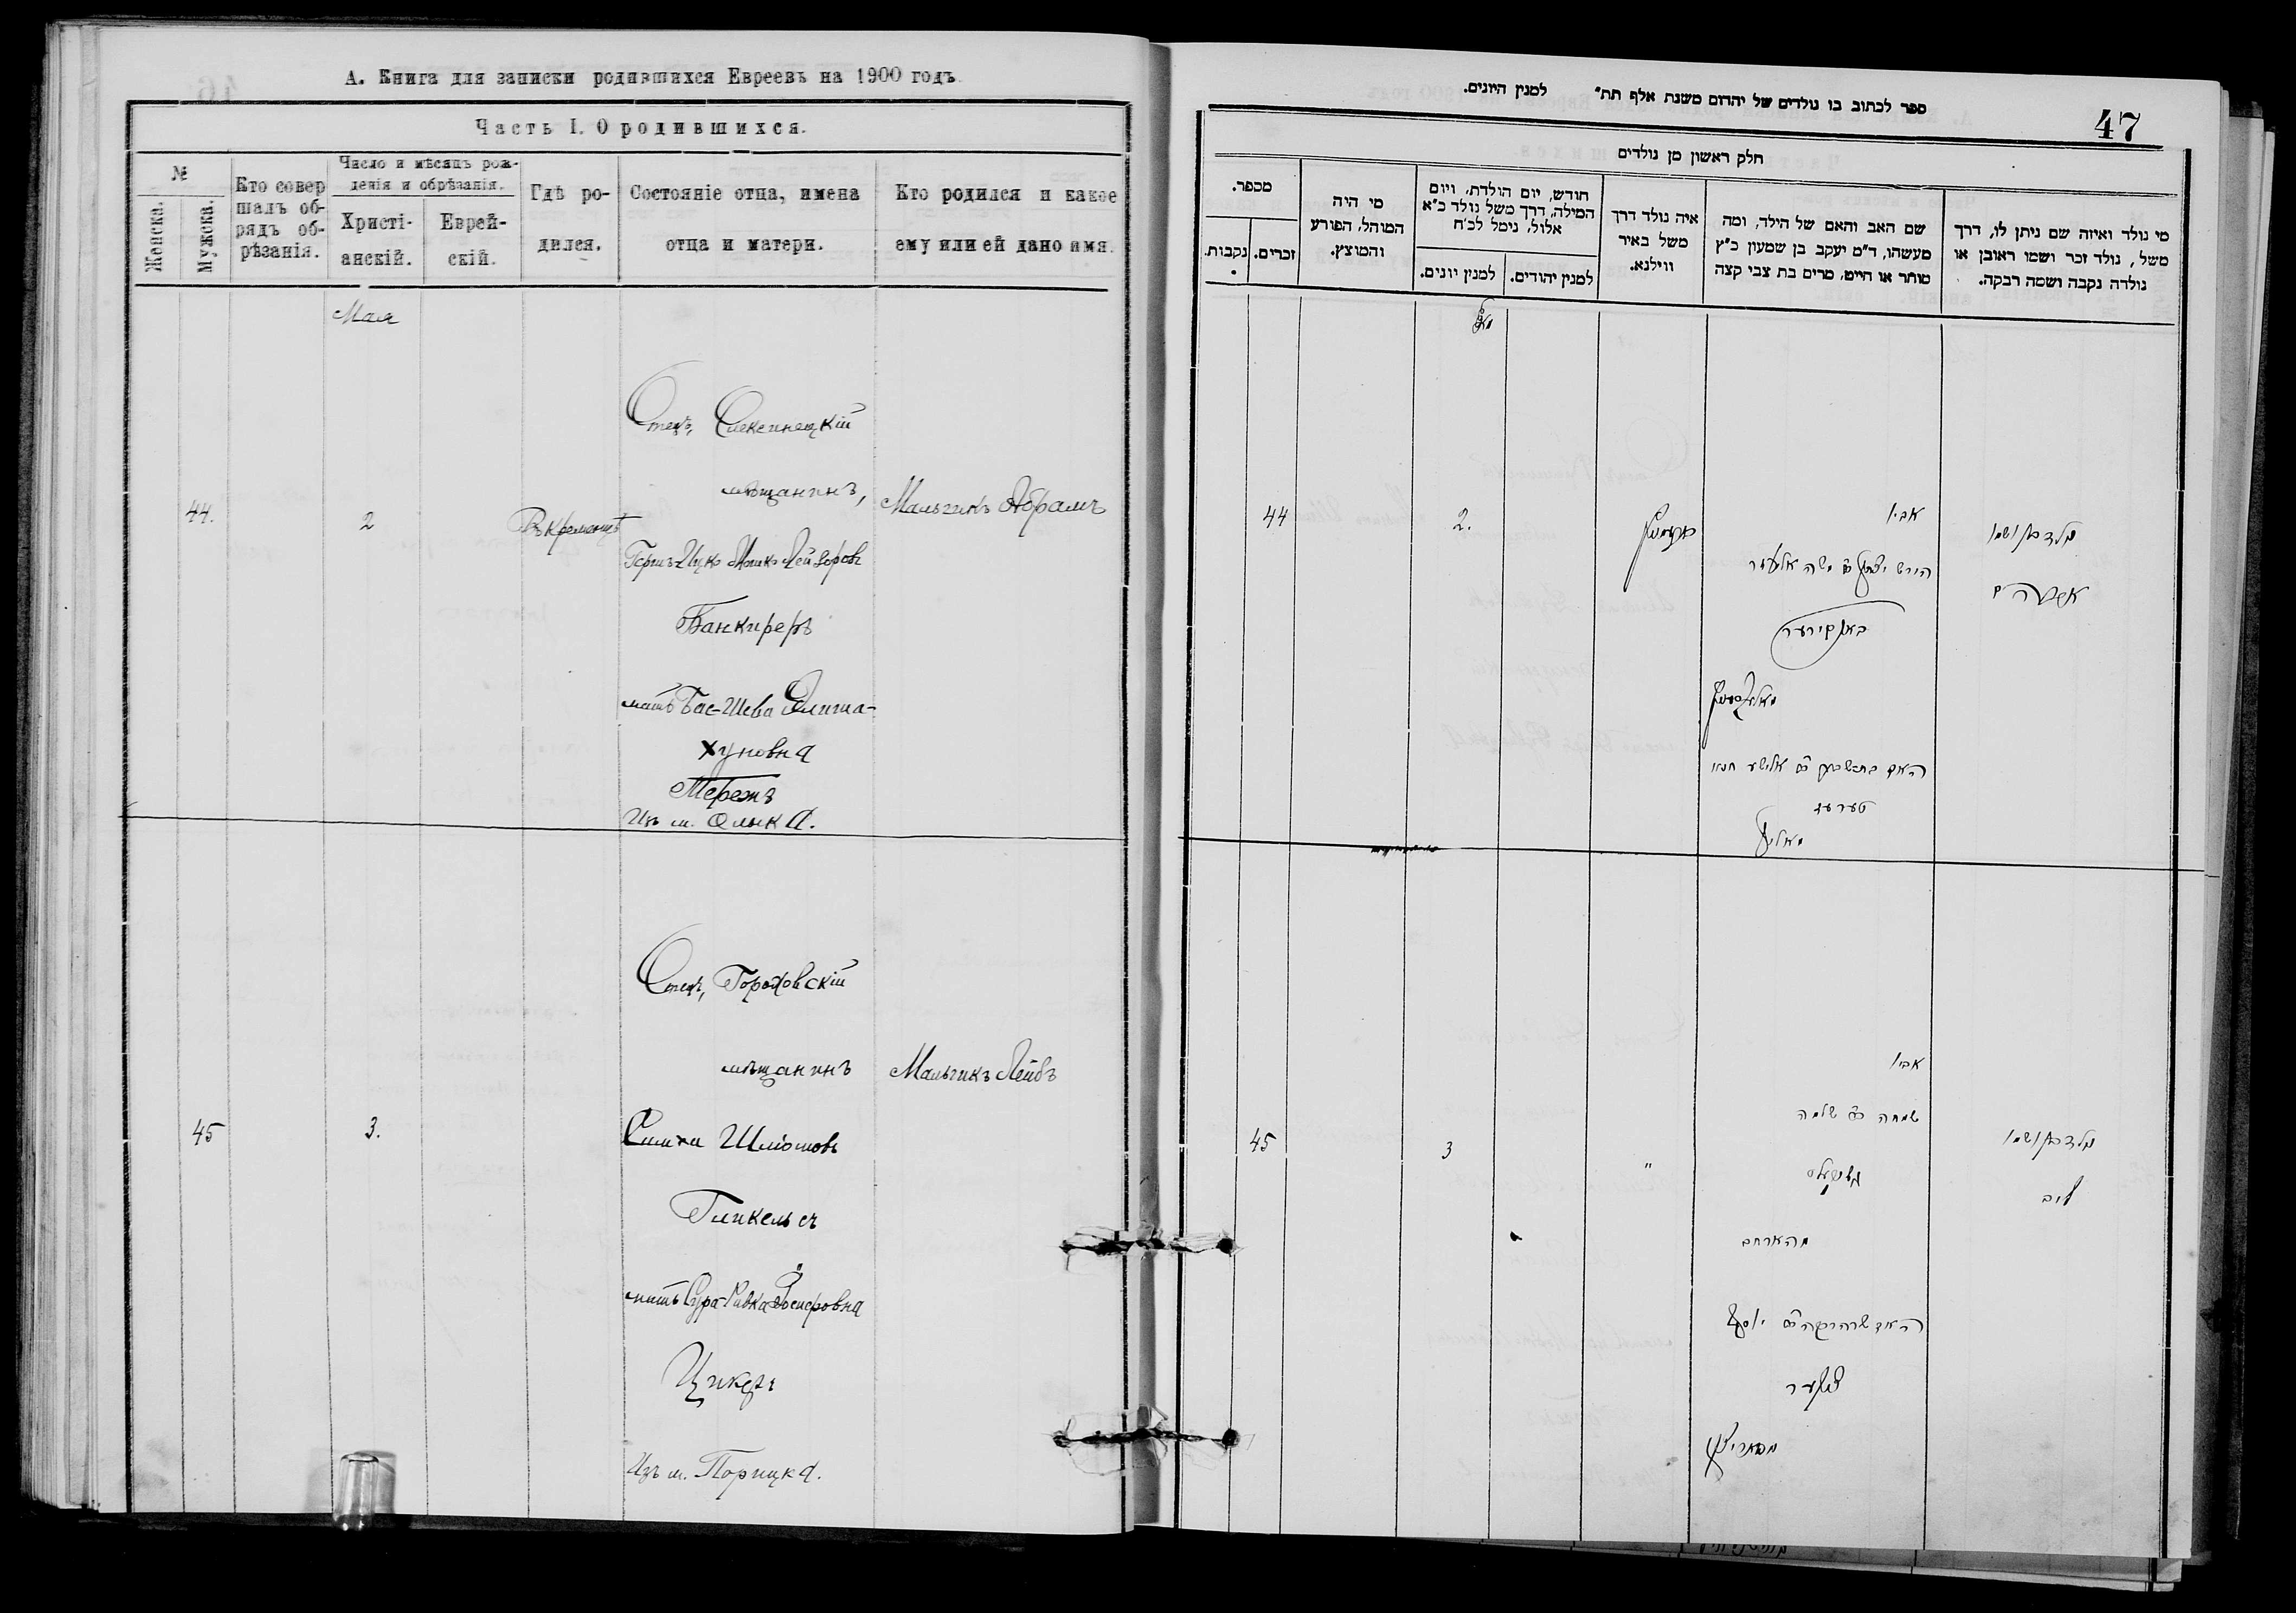 А. Книга для записки родившихся Евреевъ на 1900 годъ
Часть I. О родившихся.
№
Женска.
Мужеска.
Кто совер
шалъ об-
рядъ об-
рѣзанія.
Число и мѣсяцъ рож-
денія и обрѣзанія.
Христі-
анскій.
Еврей-
скій.
Гдѣ ро-
дился.
Состояніе отца, имена
отца и матери.
Кто родился и какое
ему или ей дано имя.
Мая
44.
2
Въ Кременцѣ
Отецъ,
мѣщанинъ,
Герш-Ицко Мошко-Лейзоровъ
Банкиреръ
мать Бас-Шева Элиша-
хуновна
Изъ м. Олыка.
Мальчикъ Абрамъ
45
3.
Отецъ, Гороховскій
мѣщанинъ
Симха Шліомовъ
Гликельсъ
мать Сура-Ривка Іосифовна
Цукеръ
Изъ м. Порицка.
Мальчикъ Лейбъ
ספר לכתוב בו נולדים של יהדום משנת אלף תת״ למנין היונים.
47
חלק ראשון מן נולדים
מספר.
נקבות.
זכרים.
מי היה
המוהל, הפורע
והמוצץ.
חודש, יום הולדת, ויום
המילה, דרך משל נולד כ״א
אלול, נימל לכ״ח
למנין יונים.
למנין יהודים.
איה נולד דרך
משל באיר
ווילנא.
שם האב והאם של הילד, ומה
מעשהו, ד״מ יעקב בן שמעון כ״ץ
סוחר או חייט, מרים בת צבי קצה
מי נולד ואיזה שם ניתן לו, דרך
משל, נולד זכר ושמו ראובן או
נולדה נקבה ושמה רבקה.
מאי
44
2.
אביו
הירש יצחק משה אליעזר
באנקירער
האם בת שבע אלישע
נולד בן ושמו
אברהם
45
3
"
אביו
שמחה שלמה
האם שרה רבקה יוסף
צוקער
נולד בן ושמו
ליב